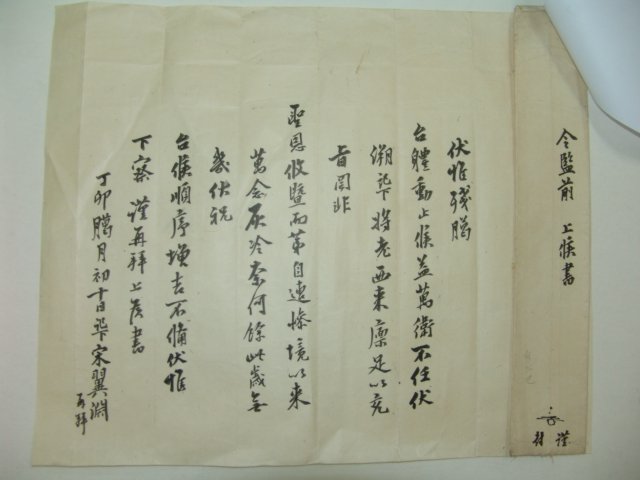 令監前 上候書
謹封
伏惟殘臘
台體動止候益萬衛不任伏
溯 將老西來廩足以充
旨 非
聖恩攸暨而第自遭慘境以來
萬念灰冷奈何餘此歲無
幾伏祝
台候順序增吉不備伏惟
下察 謹再拜上候書
丁卯臘月初十日 宋翼淵 再拜